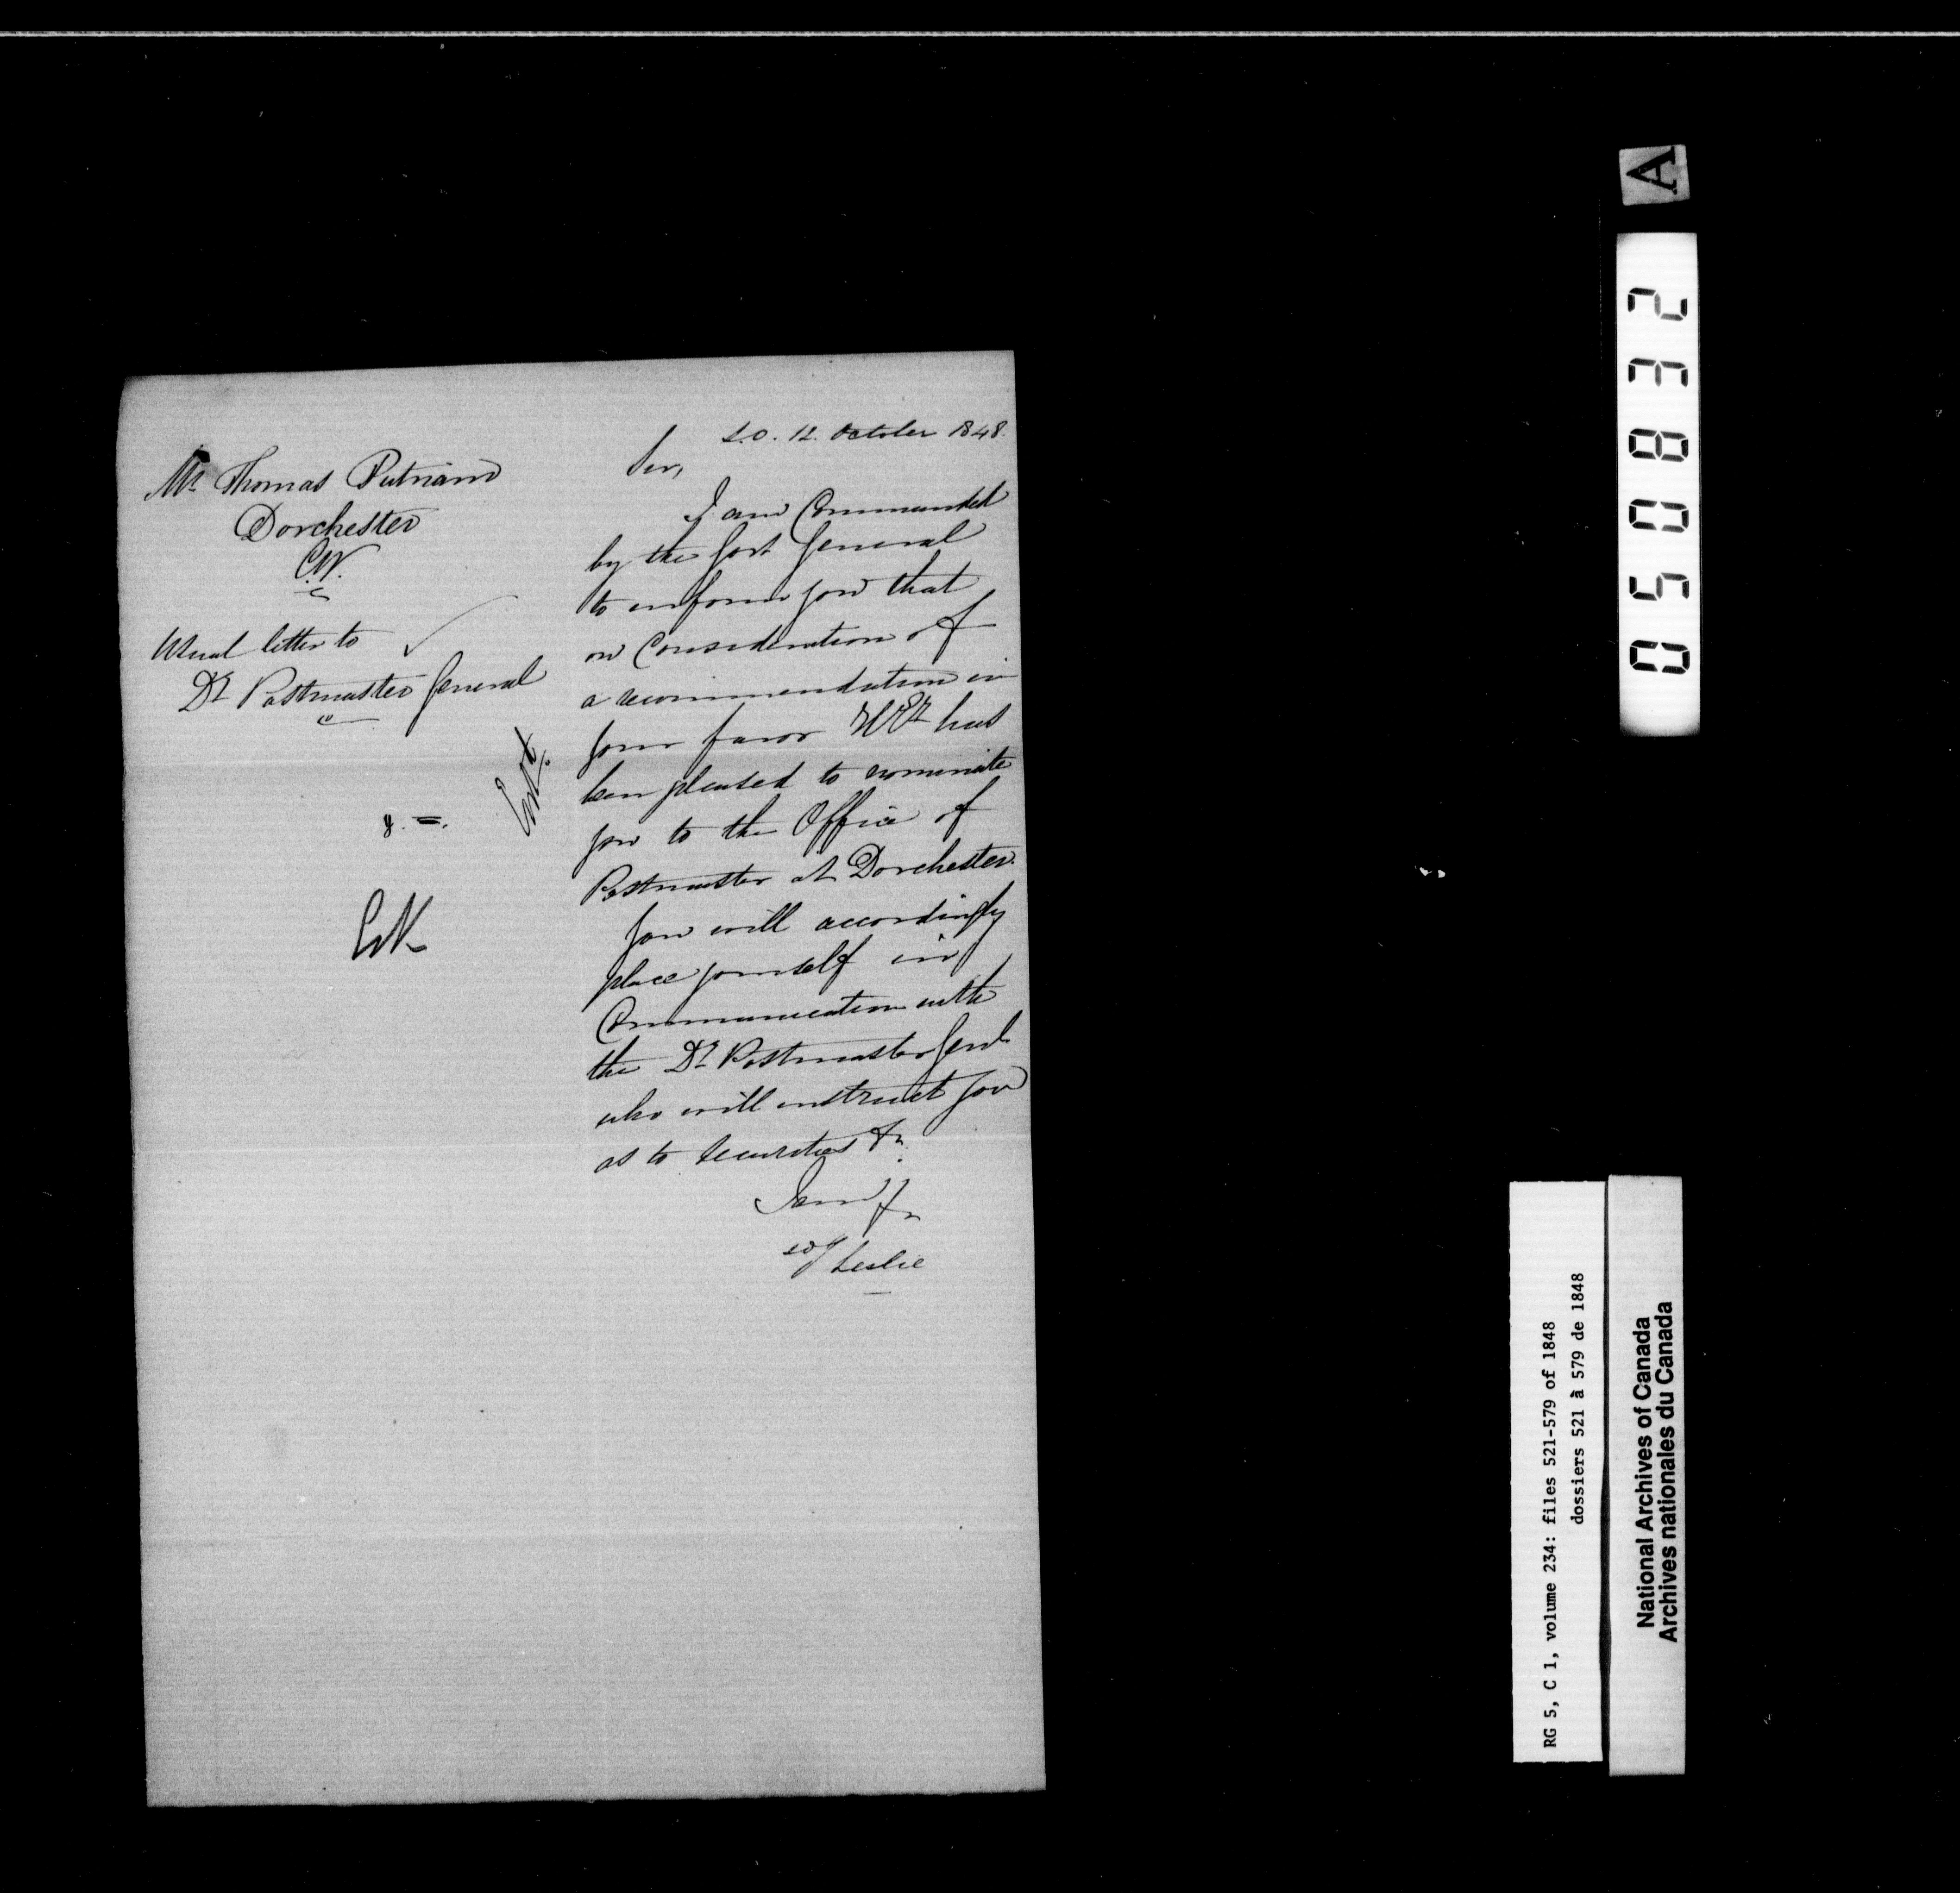 S.O. 12. October 1848.
Mr. Thomas Putnam
Dorchester
C.W.
Usual letter to
Dy. Postmaster General
Entd.
Sir,
I am Commanded
by the Govr General
to inform you that
on Consideration of
a recommendation in
your favor H.Ey has
been pleased to nominate
you to the Office of
Postmaster at Dorchester.
You will accordingly
place yourself in
Communication with
the Dy. Postmaster Genl.
who will instruct you
as to Securities &c.
I am &c
sd/ J Leslie
A
050832
RG 5, C 1, volume 234: files 521-579 of 1848
dossiers 521 à 579 de 1848
National Archives of Canada
Archives nationales du Canada